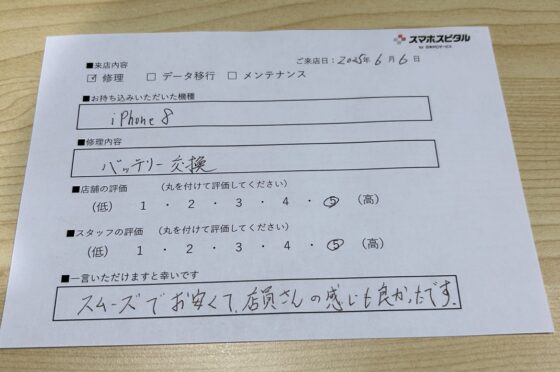 スマホスピタル
■来店内容
ご来店日：2025年6月6日
☑ 修理 □ データ移行 □ メンテナンス
■お持ち込みいただいた機種
iPhone 8
■修理内容
バッテリー交換
■店舗の評価 （丸を付けて評価してください）
（低） 1 ・ 2 ・ 3 ・ 4 ・ ⑤ （高）
■スタッフの評価 （丸を付けて評価してください）
（低） 1 ・ 2 ・ 3 ・ 4 ・ ⑤ （高）
■一言いただけますと幸いです
スムーズでお安くて、店員さんの感じも良かったです。